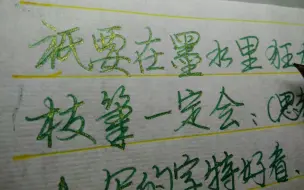 祇要在墨水里狂
枝筆一定会：(思
的字特好看